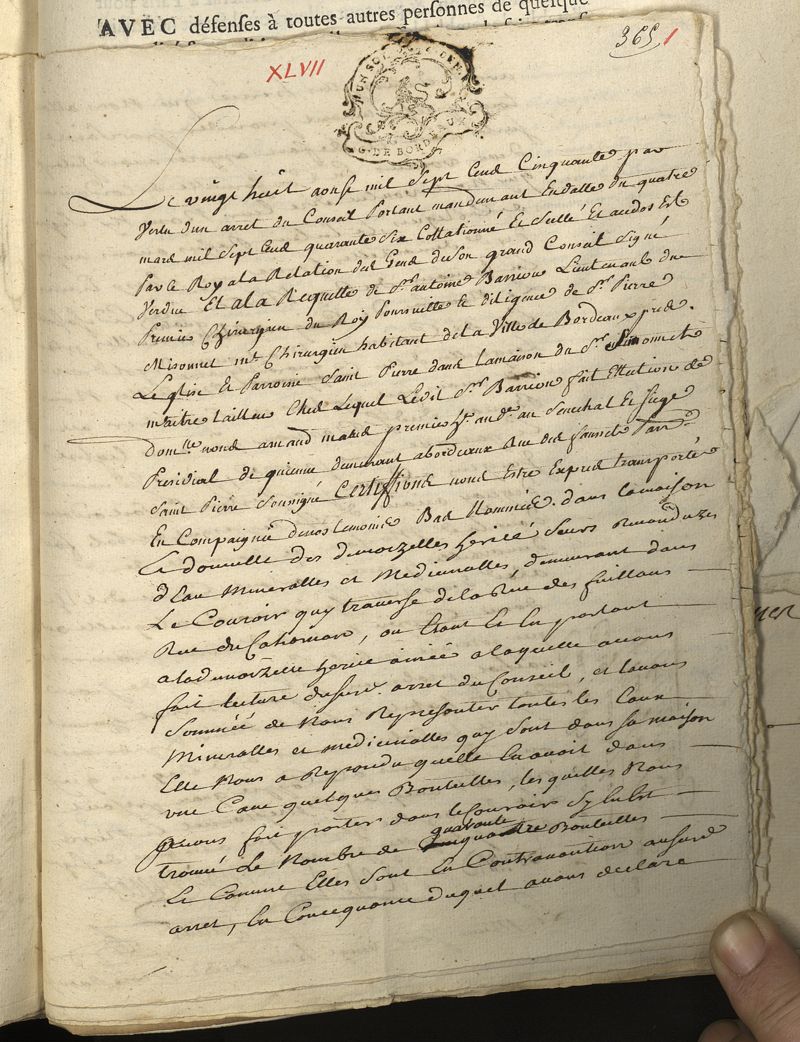 AVEC défenses à toutes autres personnes de quelque
XLVII
365
1
UN SOL
G. DE BORDEAUX
Le vingt huit aousｔ mil sept cend cinquante par
Vertu d'un arret du Conseil Portant mandemant En datte du quatre
mard mil sept cend quarante six collationné Et scellé Et audos Est
Par le Roy a la Relation des Gend de son grand Conseil signé
Verdun Et a la Requette de Sr. antoine Barrion Lieutenant du
Premier Chirurgien du Roy Poursuitte Et diligence de Sr. Pierre
Misonnet mt. Chirurgien habitant de la Ville de Bordeaux pred.
L'eglise Et Parroisse Saint Pierre dans la maison du Sr. Simonnet
maitre tailleur Ched Lequel Ledit Sr. Barrion fait Ellection de
dom.lle nous arnaud premier hr. au Senechal Et siege
Presidial de guienne demurant a bordeaux Rue des faussets Parr.
Saint Pierre soussigné Certiffions nous Estre Exprès transporté
En Compaignie de nos temoins Bas Nommées. dans la maison
Et domicille des demoizelles herité seurs
d'Eau Mineralles et Medicinalles, demurant dans
Le Couroir quy traverse de la Rue des fuillans
Rue du Cahernan, ou Etant Et En parlant
a lad. demoizelle herité ainée a laquelle avons
fait lecture dusus. arret du Conseil, et l'avons
Sommée de Nous Representer toutes les Eaux
Mineralles et medicinalles quy sont dans sa maison
Elle Nous a Repondu quelle En avoit dans
une Cave quelques Bouteilles, les quelles Nous
avons fait porter dans le Couroir
trouvé Le Nombre de quarante Bouteilles
Et Comme Elles sont En Contravantion ausuré
arret, En Concequance duquel avons declaré